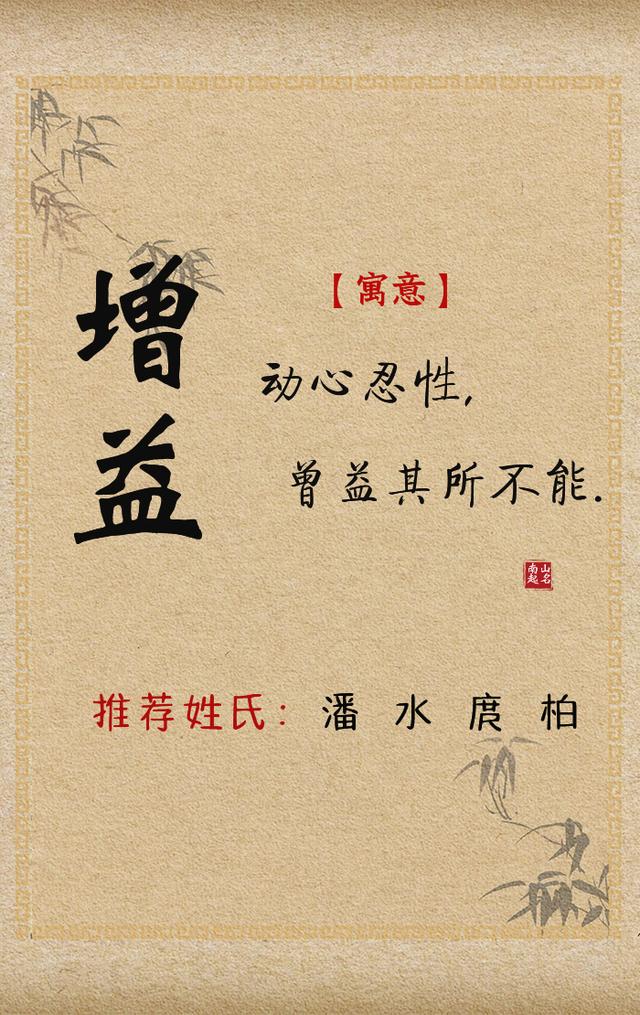 增益
【寓意】
动心忍性,
曾益其所不能.
南山起名
推荐姓氏: 潘 水 庹 柏